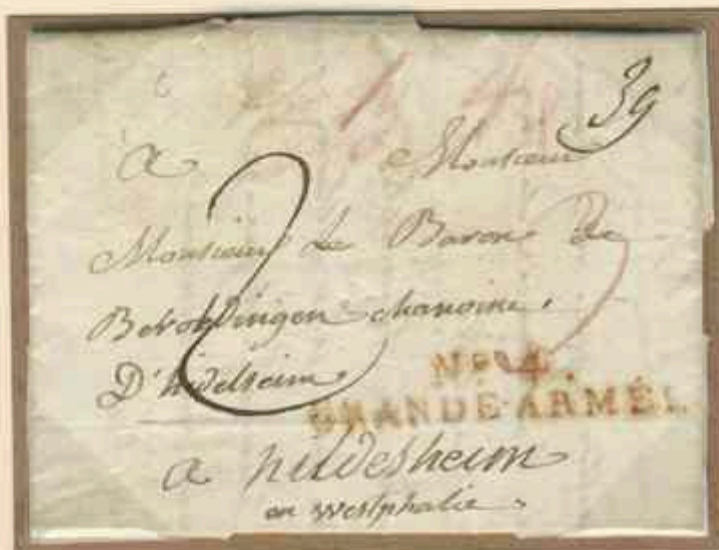 39
a Monsieur
Monsieur Le Baron De
Beroldingen chanoine,
D'hidelseim
No 14.
GRANDE ARMÉE
a hildesheim
en westphalie.